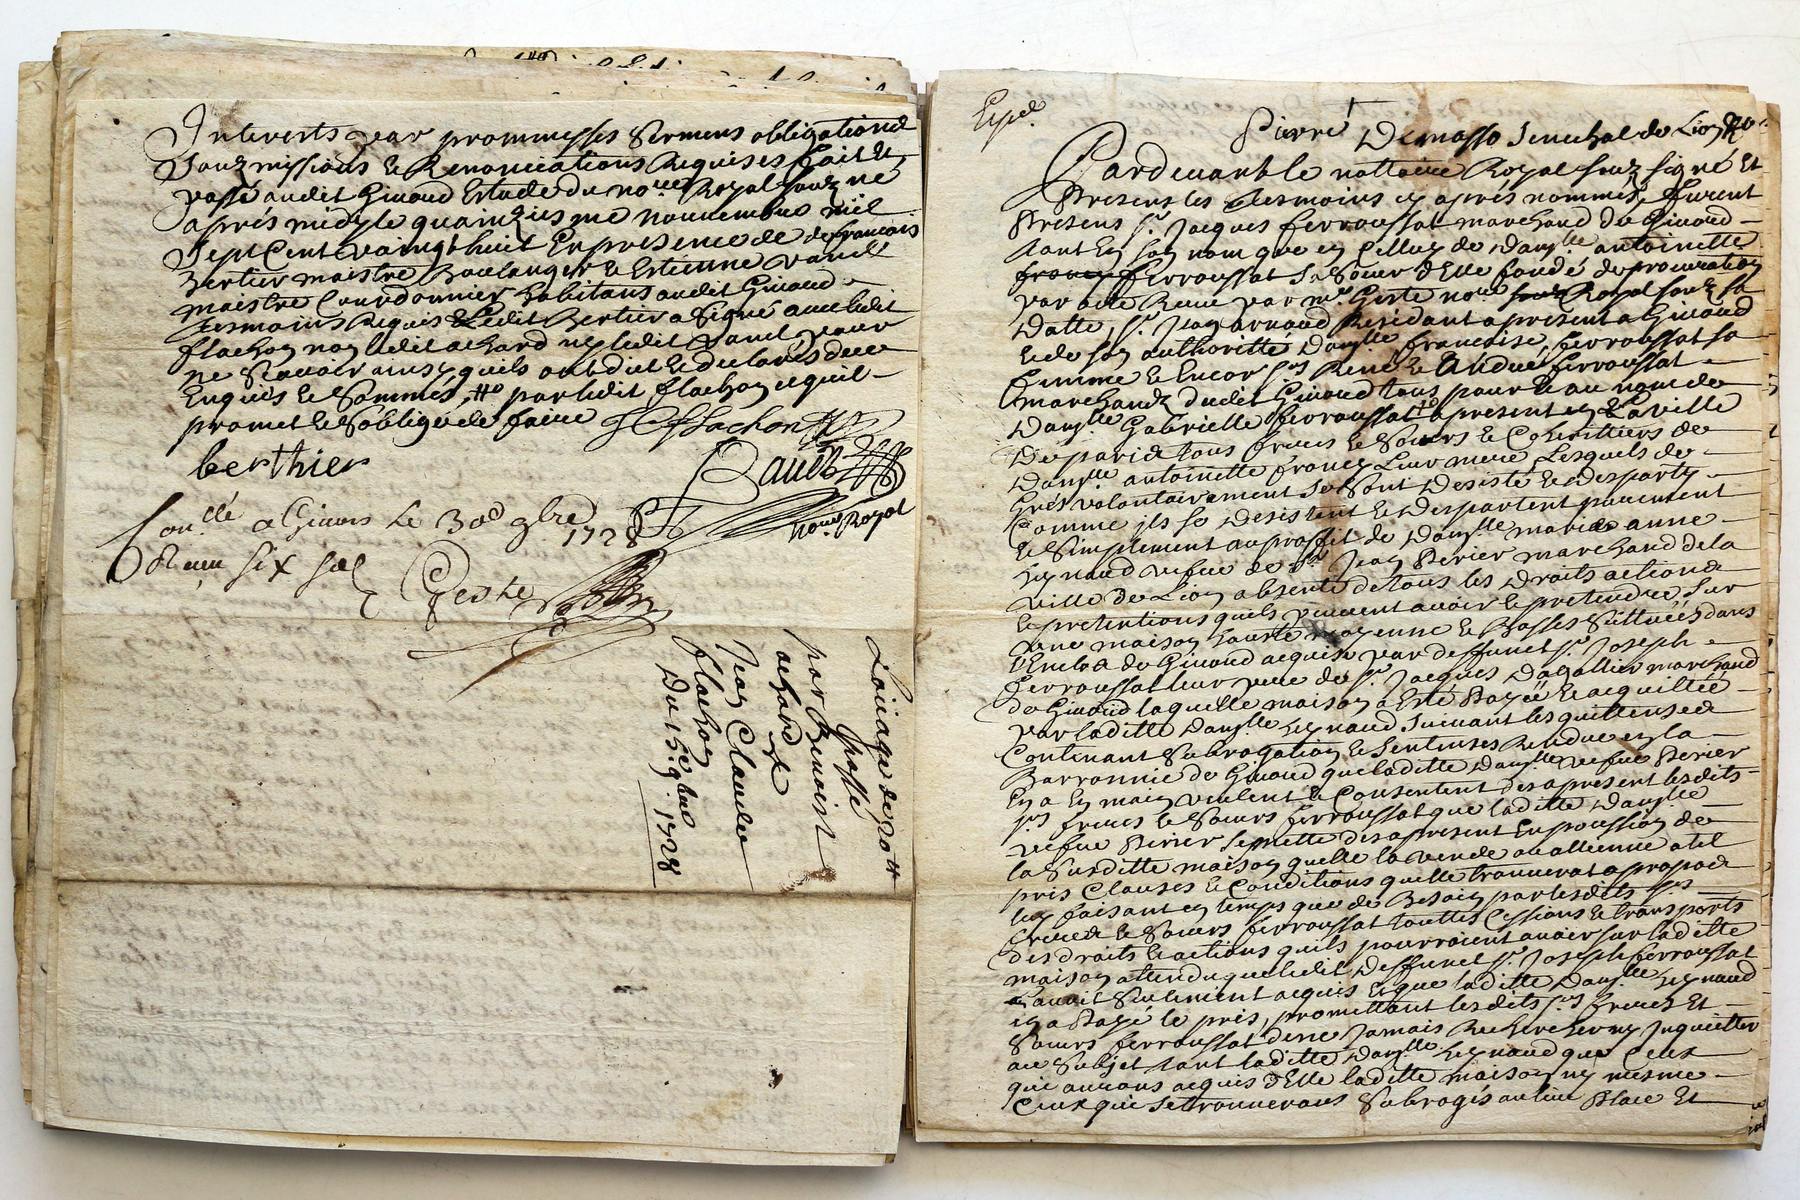 Interests par prommesses sermens obligations
soumissions & Renonciations Requises fait et
passé audit Givord Estude du no.re Royal souz.né
apres midy le quainziesme nouvembre mil
sept cent vaingt huit En presence de françois
Bertier maistre Boulanger & Estienne
maistre Courdonnier habitans audit Givord
tesmoins Requis Ledit Bertier a signé avec ledit
flachon non ledit achard ny ledit pour
ne sçavoir ainsy quils ont dit & declarés de ce
Enquis & sommés, par ledit flachon cequil
promet & soblige de faire flachon
berthier
not. Royal
Con.llé a Givors le 30e 9bre 1728
Receu six sols Geste
Loüiage de 20 tt
passé
par Benoist
achard
Jean Claude
flachon
Du 15e 9bre 1728
Exped
Pierre Demasso Senechal de Lion
Pardevant le nottaire Royal souz signé Et
Presens les tesmoins cy aprés nommés, furent
Presens Sr. Jacques ferroussat marchand de Givord
tant En son nom que en Celluy de Dam.lle antoinette
ferroussat sa soeur d'Elle fondé de procuration
par acte Receu par me. Geste no.re Royal souz sa
Datte, Sr. Jean arnaud Residant apresent a Givord
& de son authoritte Dam.lle francoise ferroussat sa
femme & Encor Srs René & André ferroussat
marchands dudit Givord tous pour & au nom de
Dam.lle Gabrielle ferroussat apresent en La ville
De paris tous freres & soeurs & Coheritiers de
Dam.lle antoinette francy Leur mere Lesquels de
Gres volontairement se sont Desisté & desparty
Comme ils se Desistent & despartent purement
& simplement au proffit de Dam.lle marie anne
Leynaud vefve de Sr. Jean Perier marchand de la
ville de Lion absente de tous les Droits actions
& pretentions quels peuvent avoir & pretendre sur
une maison haute moyenne & Basses sittuées dans
l'Enclos de Givord acquise par deffunct Sr. Joseph
ferroussat leur pere de Sr. Jacques Dagallier marchand
de Givord laquelle maison a Esté Payée & acquittée
par laditte Dam.lle Leynaud suivant les quittences
Contenant subrogation & sentences Rendue en la
Barronnie de Givord que laditte Dam.lle vefve Perier
En a En main veulent & Consentent des apresent lesdits
Srs freres & soeurs ferroussat que laditte Dam.lle
vefve Perier se mette des apresent En poussion de
la susditte maison quelle la vende ou allienne a tel
pris Clauses & Conditions quelle trouverat apropos
luy faisant en temps que de Besoin par lesdits Srs
freres & soeurs ferroussat touttes Cessions & transports
des droits & actions quils pourroient avoir sur laditte
maison attendu que ledit Deffunct Sr. Joseph ferroussat
Lavoit seulement acquis Et que laditte Dam.lle Leynaud
en a Payé le pris, promettant lesdits Srs freres Et
soeurs ferroussat de ne Jamais Rechercher ny Inquietter
au subjet tant laditte Dam.lle Leynaud que Ceux
qui aurons acquis d'Elle laditte maison ny mesme
Ceux qui se trouverons subrogés au lieu Place Et